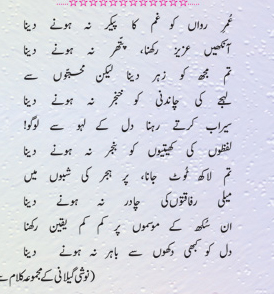 عُمرِ رواں کو غم کا پیکر نہ ہونے دینا
آنکھیں عزیز رکھنا، پتھر نہ ہونے دینا
تم مجھ کو زہر دینا لیکن محبتوں سے
لہجے کی چاندنی کو خنجر نہ ہونے دینا
سیراب کرتے رہنا دل کے لہو سے لوگو!
لفظوں کی کھیتیوں کو بنجر نہ ہونے دینا
تم لاکھ ٹوٹ جانا، پر ہجر کی شبوں میں
میلی رفاقتوں کی چادر نہ ہونے دینا
ان سُکھ کے موسموں پر کم کم یقین رکھنا
دل کو کبھی دکھوں سے باہر نہ ہونے دینا
(نوشی گیلانی کے مجموعہ کلام سے